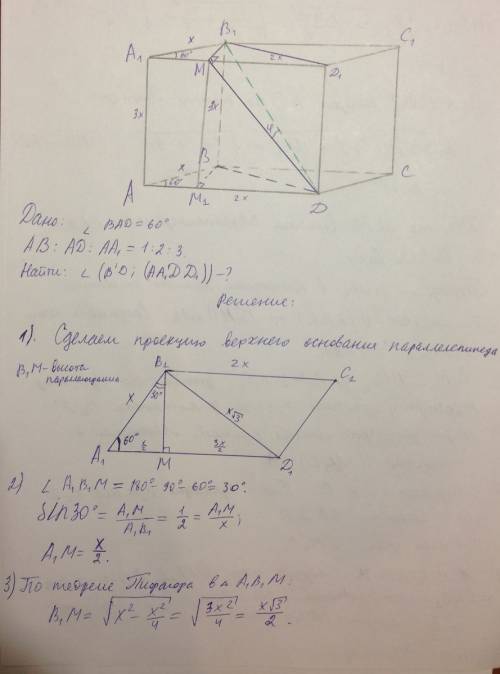 B₁
C₁
x
A₁
60°
2x
M
D₁
3x
3x
4x
B
x
C
A
60°
M₁
2x
D
Дано: ∠ BAD = 60°
AB : AD : AA₁ = 1:2:3.
Найти: ∠ (B'D; (AA₁DD₁)) - ?
Решение:
1). Сделаем проекцию верхнего основания параллелепипеда
B₁M - высота
параллелограмма
B₁
2x
C₁
x
30°
x√3
60°
x/2
3x/2
A₁
M
D₁
2) ∠ A₁B₁M = 180° - 90° - 60° = 30°.
Sin30° = A₁M/A₁B₁ = 1/2 = A₁M/x;
A₁M = x/2.
3) По теореме Пифагора в △ A₁B₁M:
B₁M = √(x² - x²/4) = √(3x²/4) = x√3/2.